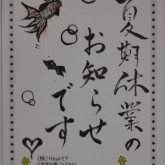 夏期休業の
お知らせ
です
(株)HeartY